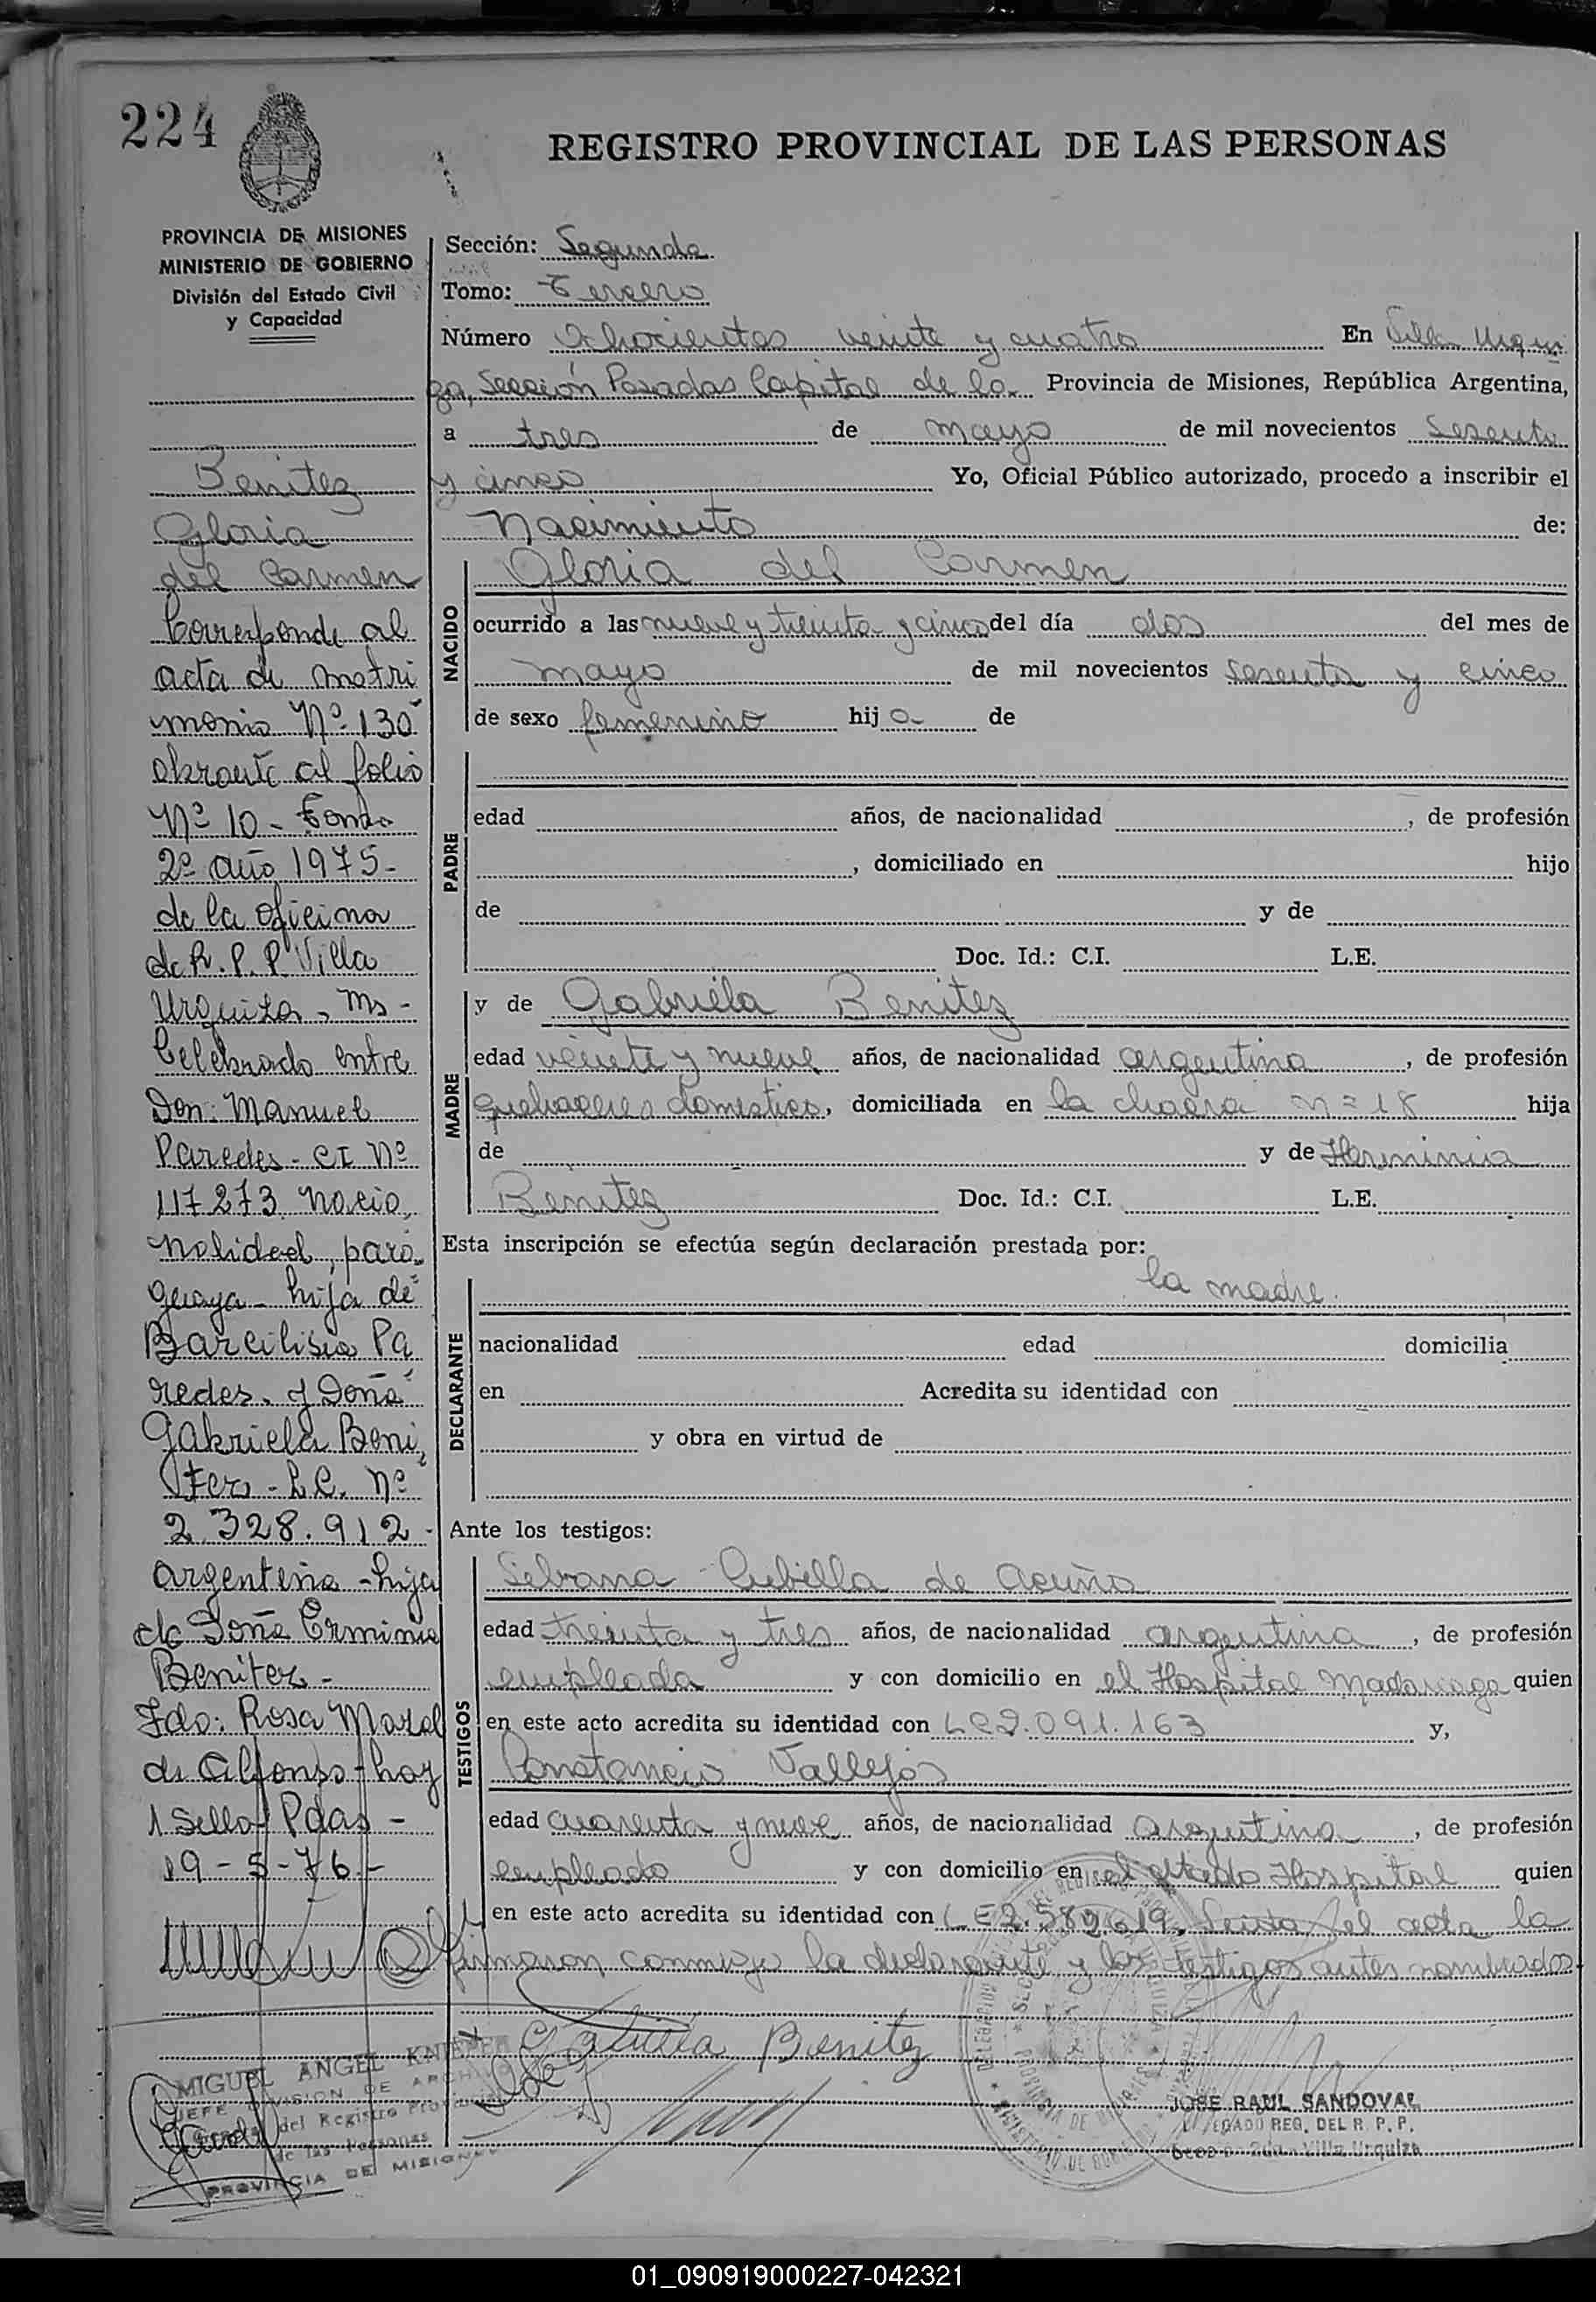 224
REGISTRO PROVINCIAL DE LAS PERSONAS
PROVINCIA DE MISIONES
MINISTERIO DE GOBIERNO
División del Estado Civil
y Capacidad
Benitez
Gloria
del Carmen
Corresponde al
acta de matri
monio Nº 130
obrante al folio
Nº 10 - Tomo
2º año 1975-
de la oficina
de R. P. P. Villa
Urquiza, Ms -
Celebrado entre
Don: Manuel
Paredes - CI Nº
117.273 nacio,
nalidad, para,
guaya - hijo de
Barcilisia Pa
redes. y Doña
Gabriela Beni,
tez - L.C. Nº
2.328.912 -
argentina - hija
de Doña Erminia
Benitez -
Fdo: Rosa Maral
de Alfonso - hay
1 Sello Pdas -
19-5-76 -
Sección: Segunda
Tomo: Tercero
Número Ochocientos veinte y cuatro En Villa Urqui
za, Sección Posadas Capital de la Provincia de Misiones, República Argentina,
a tres de mayo de mil novecientos sesenta
y cinco Yo, Oficial Público autorizado, procedo a inscribir el
Nacimiento de:
NACIDO
Gloria del Carmen
ocurrido a las nueve y treinta y cinco del día dos del mes de
mayo de mil novecientos sesenta y cinco
de sexo femenino hija de
PADRE
edad años, de nacionalidad , de profesión
, domiciliado en hijo
de y de
Doc. Id.: C.I. L.E.
MADRE
y de Gabriela Benitez
edad veinte y nueve años, de nacionalidad argentina, de profesión
quehaceres domestico, domiciliada en la chacra nº 18 hija
de y de Herminia
Benitez Doc. Id.: C.I. L.E.
Esta inscripción se efectúa según declaración prestada por:
DECLARANTE
la madre.
nacionalidad edad domicilia
en Acredita su identidad con
y obra en virtud de
Ante los testigos:
TESTIGOS
Silvana Cubilla de Acuña
edad treinta y tres años, de nacionalidad argentina, de profesión
empleada y con domicilio en el Hospital Madariaga quien
en este acto acredita su identidad con LC 9.091.163 y,
Constancio Vallejos
edad cuarenta y nueve años, de nacionalidad Argentina, de profesión
empleado y con domicilio en el citado Hospital quien
en este acto acredita su identidad con LE 2.589.619. Leida el acta la
firmaron conmigo la declarante y los testigos antes nombrados
Gabriela Benitez
MIGUEL ANGEL
JEFE DIVISION DE ARCHIVO
del Registro Provincial
de las Personas
PROVINCIA DE MISIONES
JOSE RAUL SANDOVAL
DELEGADO REG. DEL R. P. P.
Sección 2da. - Villa Urquiza
01_090919000227-042321